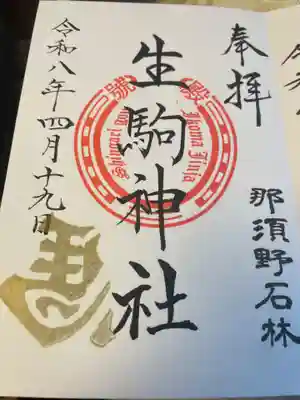 奉拝
那須野石林
生駒神社
Ikoma Jinja
令和八年四月十九日
馬